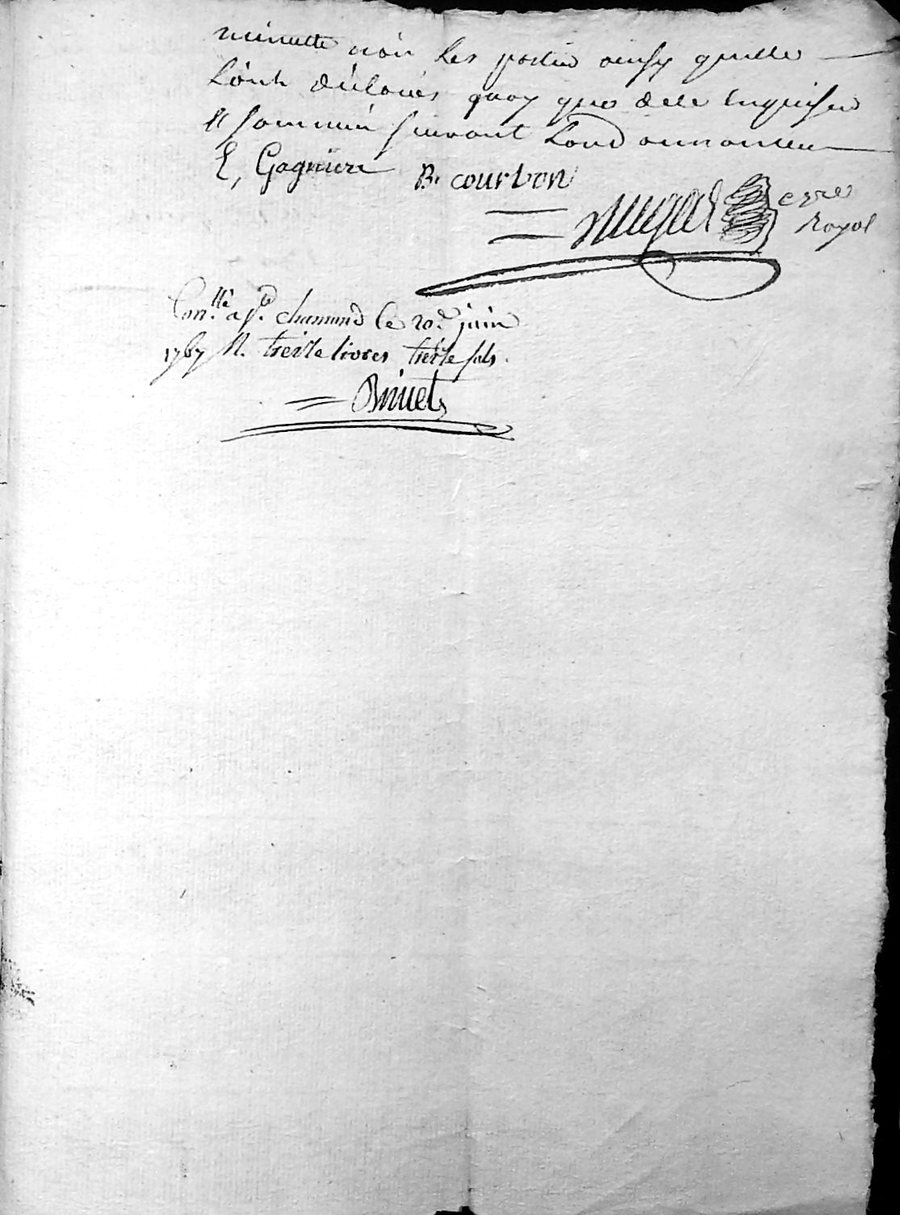 minutte non les parties ainsy quelle
l'ont déclarés quoy que de ce enquises
et sommées suivant l'ordonnance
E, Gagniere B. courbon
notre
Royal
Con.llé a S.t chamond le 20.e juin
1767 R. treize livres treize sols.